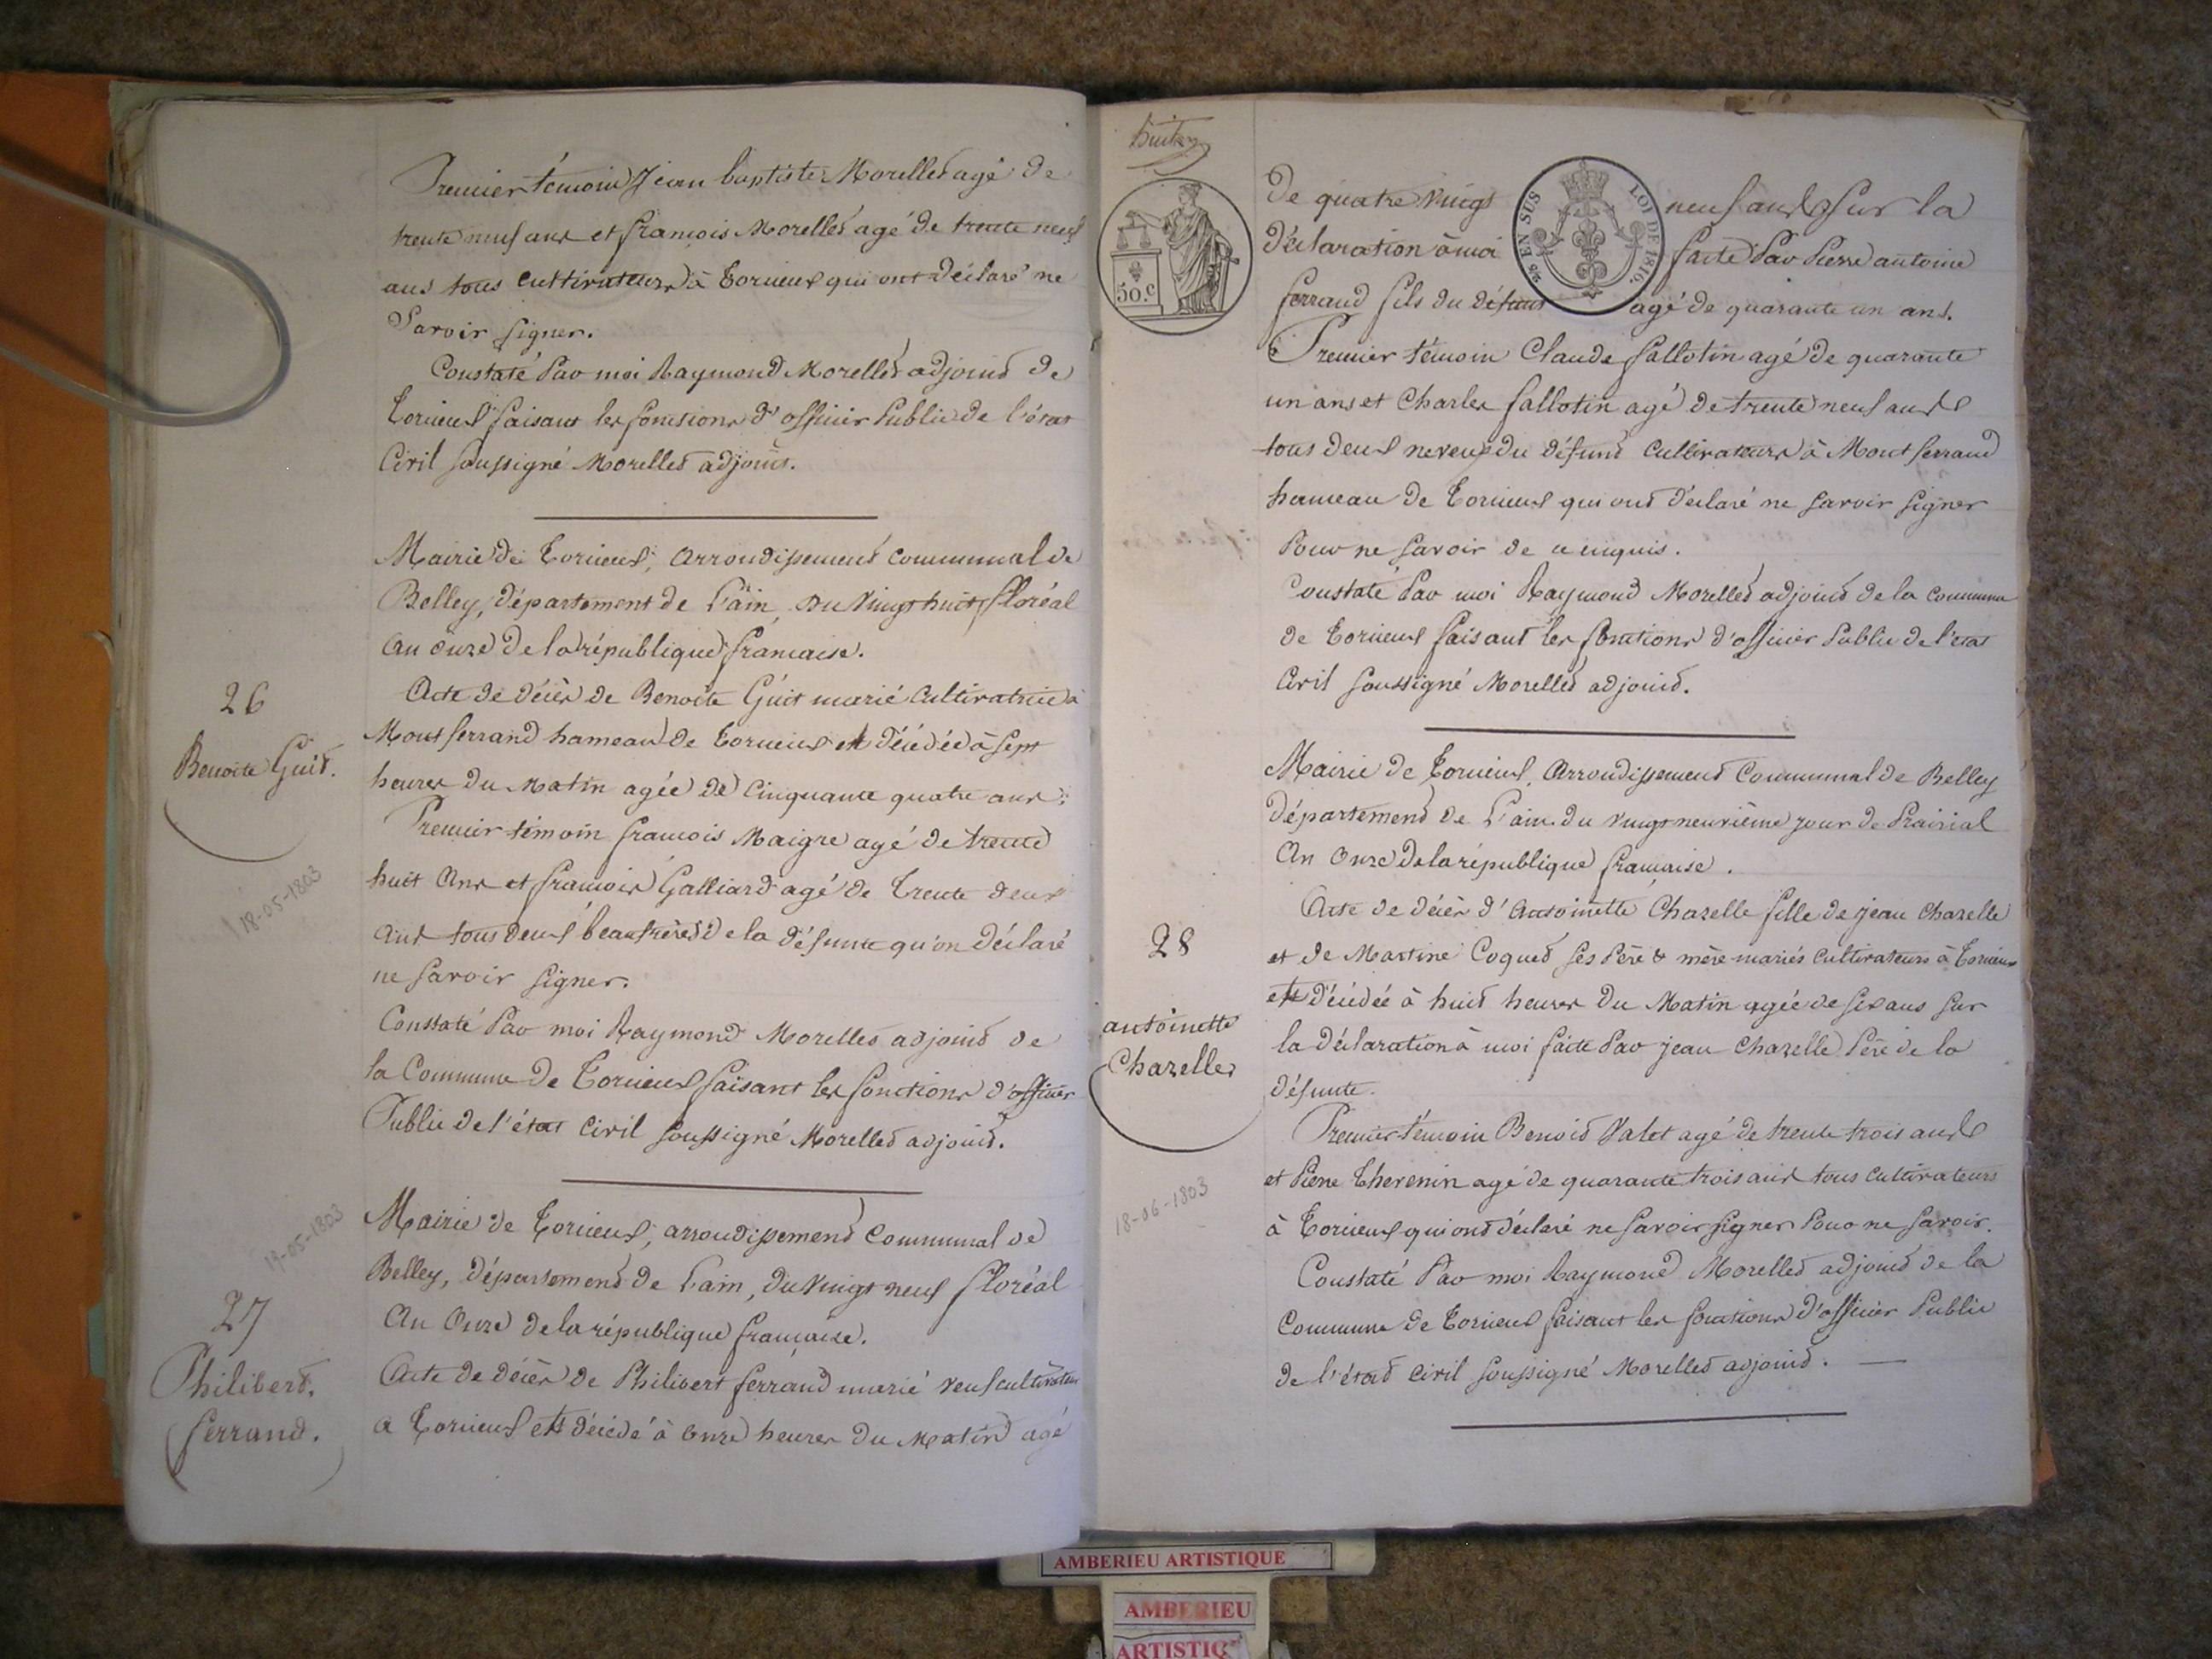 Premier témoin Jean baptiste Morelled agé de
trente neuf ans et françois Morelled agé de trente neuf
ans tous cultivateurs à Torcieux qui ont déclaré ne
Savoir signer.
Constaté Par moi Raymond Morelled adjoind de
Torcieux faisant les fonctions d'officier Public de l'état
Civil soussigné Morelled adjoint.
Mairie de Torcieux, arrondissement communal de
Belley, département de l'ain du vingt huit floréal
an onze de la république française.
26
Benoite Guid.
18-05-1803
Acte de décès de Benoite Guit marié cultivatrice à
Montferrand hameau de Torcieux est décédée à sept
heures du matin agée de cinquante quatre ans.
Premier témoin françois Maigre agé de trente
huit ans et françois Galliard agé de trente deux
ans tous deux beaufrères de la défunte qu'on déclaré
ne savoir signer.
Constaté Par moi Raymond Morelled adjoind de
la Commune de Torcieux faisant les fonctions d'officier
Public de l'état Civil soussigné Morelled adjoind.
19-05-1803
27
Philiberd
ferrand.
Mairie de Torcieux, arrondissemend Communal de
Belley, départemend de l'ain, du vingt neuf floréal
An Onze de la république française.
Acte de décès de Philibert ferrand marié veuf cultivateur
à Torcieux est décédé à onze heures du matin agé
huit
50.c
25 EN SUS
LOI DE 1816.
De quatre vingt neuf ans sur la
déclaration à moi faite Par Pierre antoine
ferrand fils du défunt agé de quarante un ans.
Premier témoin Claude fallotin agé de quarante
un ans et Charles fallotin agé de trente neuf ans
tous deux neveux du défund cultivateurs à Mont ferrand
hameau de Torcieux qui ond déclaré ne savoir signer
Pour ne savoir de ce enquis.
Constaté Par moi Raymond Morelled adjoind de la commune
de Torcieux faisant les fonctions d'officier Public de l'état
Civil soussigné Morelled adjoind.
Mairie de Torcieux, Arrondissemend Communal de Belley
Départemend de l'ain du vingt neuvième jour de Prairial
An Onze de la république française.
28
antoinette
Chazelle
18-06-1803
Acte de décès d'Antoinette Chazelle fille de jean Chazelle
et de Martine Coqued ses Père & mère mariés cultivateurs à Torcieux
est décédée à huid heures du Matin agée de six ans sur
la déclaration à moi faite Par jean Chazelle Père de la
défunte.
Premier témoin Benoid Valet agé de trente trois ans
et Pierre Thevenin agé de quarante trois ans tous cultivateurs
à Torcieux qui ond déclaré ne savoir signer Pour ne savoir.
Constaté Par moi Raymond Morelled adjoind de la
Commune de Torcieux faisant les fonctions d'officier Public
de l'étad Civil soussigné Morelled adjoind.
AMBERIEU ARTISTIQUE
AMBERIEU
ARTISTIQ